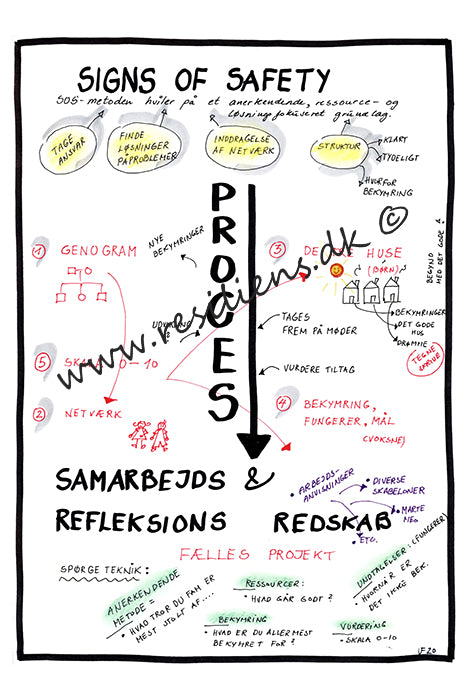 SIGNS OF SAFETY
SOS-metoden hviler på et anerkendende, ressource- og
løsningsfokuseret grundlag.
TAGE
ANSVAR
FINDE
LØSNINGER
PÅ PROBLEMER
INDDRAGELSE
AF NETVÆRK
STRUKTUR
KLART
TYDELIGT
HVORFOR
BEKYMRING
PROCES
©
www.resiliens.dk
1 GENOGRAM
NYE
BEKYMRINGER
3 DE HUSE
(BØRN)
BEGYND
MED DET GODE!
BEKYMRINGER
DET GODE
HUS
DRØMME
TEGNE
TAGES
FREM PÅ MØDER
5 0-10
VURDERE TILTAG
2 NETVÆRK
4 BEKYMRING,
FUNGERER, MÅL
(VOKSNE)
SAMARBEJDS &
REFLEKSIONS REDSKAB
• ARBEJDS-
ANVISNINGER
• DIVERSE
SKABELONER
• MARTE
MEO
• ETC.
FÆLLES PROJEKT
SPØRGE TEKNIK:
ANERKENDENDE
METODE =
• HVAD TROR DU FAM ER
MEST STOLT AF....
RESSOURCER:
• HVAD GÅR GODT?
BEKYMRING
• HVAD ER DU ALLERMEST
BEKYMRET FOR?
UNDTAGELSER: (FUNGERER)
• HVORNÅR ER
DET IKKE BEK.
VURDERING
• SKALA 0-10